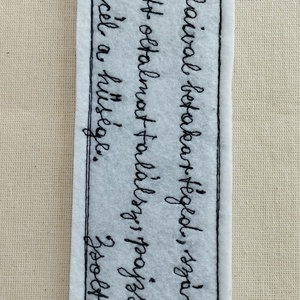 laival betakar téged, szár
tt oltalmat találsz, pajzs
cél a hűsége. Zsolt